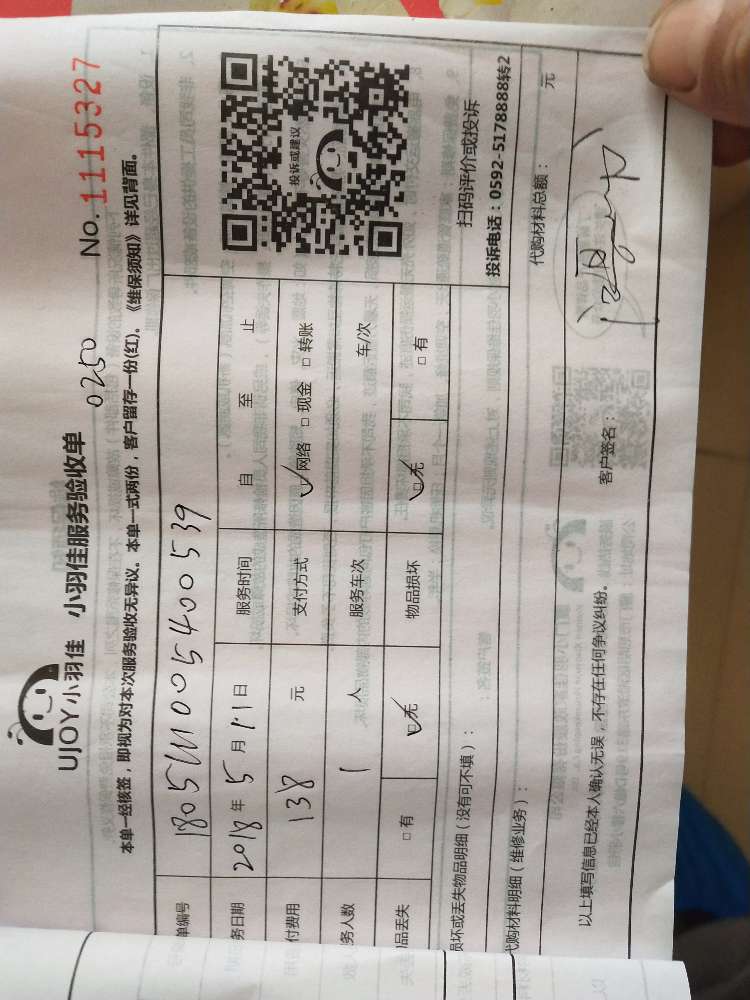 UJOY小羽佳 小羽佳服务验收单
0250
No. 1115327
本单一经核签，即视为对本次服务验收无异议。本单一式两份，客户留存一份(红)。《维保须知》详见背面。
单编号
务日期 2018年5月11日 服务时间 自 至 止
付费用 138 元 支付方式 ✓网络 □现金 □转账
务人数 1 人 服务车次 车/次
品丢失 □有 ☑无 物品损坏 ☑无 □有
投诉或建议
扫码评价或投诉
投诉电话：0592-5178888转2
损坏或丢失物品明细（没有可不填）：
代购材料明细（维修业务）： 代购材料总额： 元
以上填写信息已经本人确认无误，不存在任何争议纠纷。 客户签名：